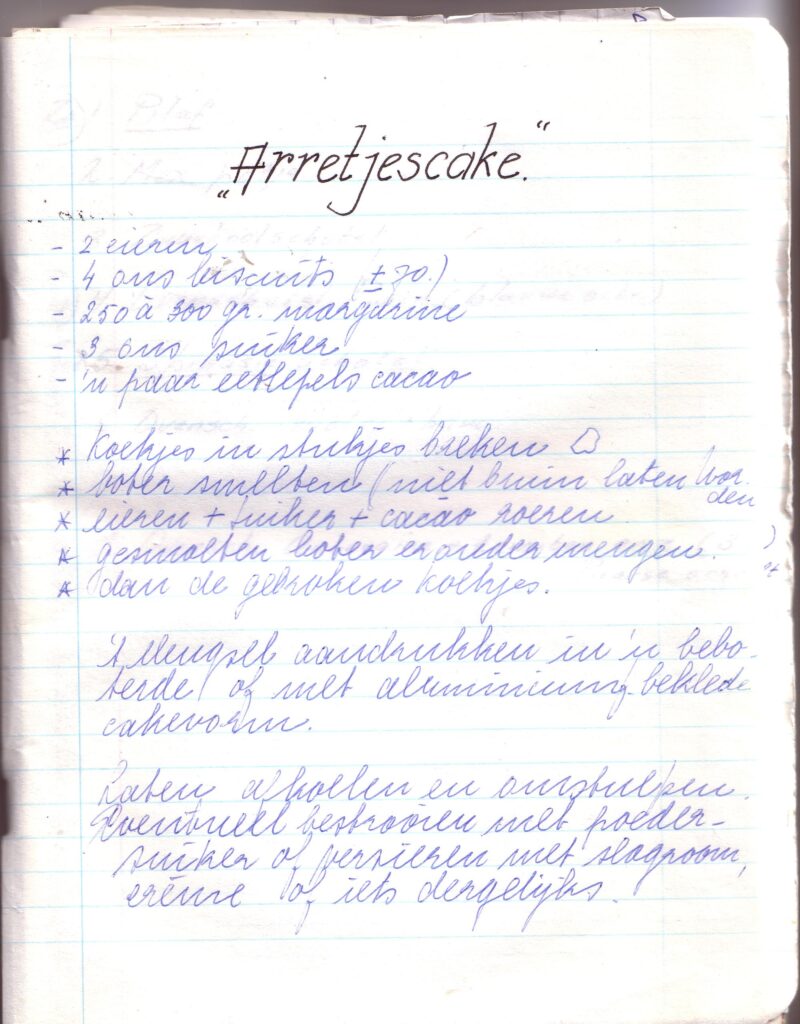 „Arretjescake.“
- 2 eieren
- 4 ons biscuits (± 30.)
- 250 à 300 gr. margarine
- 3 ons suiker
- 'n paar eetlepels cacao
* koekjes in stukjes breken
* boter smelten (niet bruin laten worden
* eieren + suiker + cacao roeren
* gesmolten boter eronder mengen.
* dan de gebroken koekjes.
't Mengsel aandrukken in 'n bebo-
terde of met aluminium beklede
cakevorm.
Laten afkoelen en omstulpen.
Eventueel bestrooien met poeder-
suiker of versieren met slagroom,
crème of iets dergelijks.